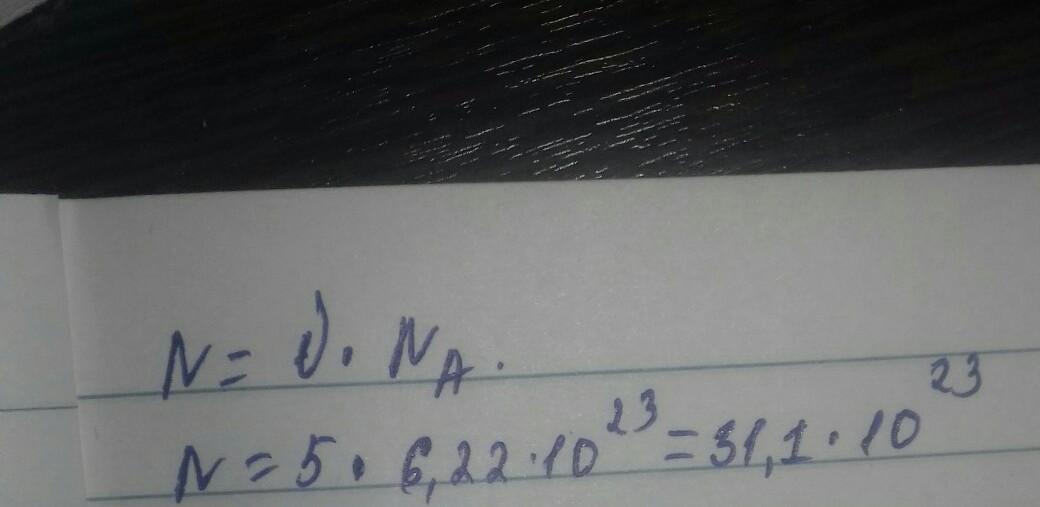 N = ν · N_A.
N = 5 · 6,22 · 10²³ = 31,1 · 10²³